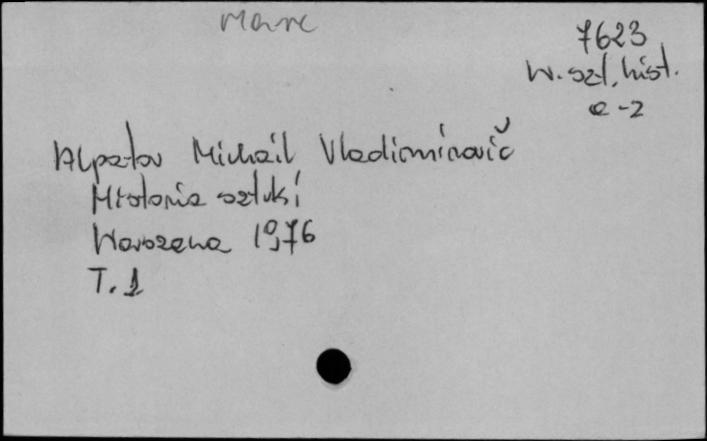 7623
W. szt. hist.
e-2
Alpatov Michail Vladimirovič
Historia sztuki
Warszawa 1976
T. 1